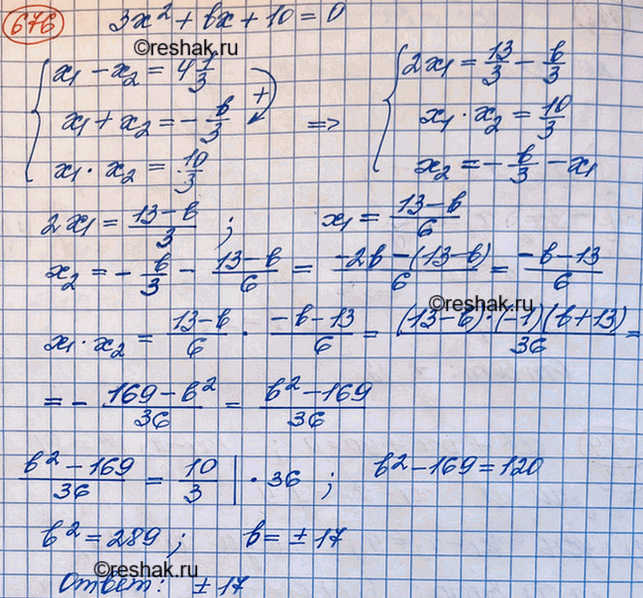 676 3x² + bx + 10 = 0
©reshak.ru
{ x₁ - x₂ = 4 1/3 +) { 2x₁ = 13/3 - b/3
x₁ + x₂ = - b/3 => x₁ · x₂ = 10/3
x₁ · x₂ = 10/3 x₂ = - b/3 - x₁
2x₁ = (13-b)/3 ; x₁ = (13-b)/6
x₂ = - b/3 - (13-b)/6 = (-2b-(13-b))/6 = (-b-13)/6
©reshak.ru
x₁ · x₂ = (13-b)/6 · (-b-13)/6 = ((13-b)·(-1)(b+13))/36 =
= - (169-b²)/36 = (b²-169)/36
(b²-169)/36 = 10/3 | · 36 ; b²-169=120
b² = 289 ; b = ±17
©reshak.ru
Ответ: ±17